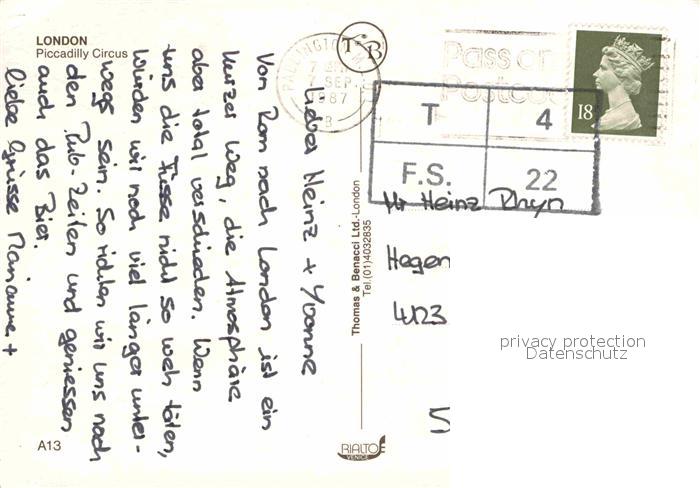 LONDON
Piccadilly Circus
Lieber Heinz + Yvonne
Von Rom nach London ist ein
kurzer Weg, die Atmosphäre
aber total verschieden. Wenn
uns die Füsse nicht so weh täten,
würden wir noch viel länger unter-
wegs sein. So richten wir uns nach
den Pub-Zeiten und geniessen
auch das Bier.
Liebe Grüsse Marianne +
A13
Thomas & Benacci Ltd.-London
Tel.(01)4032835
RIALTO
VENICE
T B
PADDINGTON
7 SEP
1987
Pass on
Postcode
18
T 4
F.S. 22
Mr Heinz Rhyn
Hegen
4123
privacy protection
Datenschutz